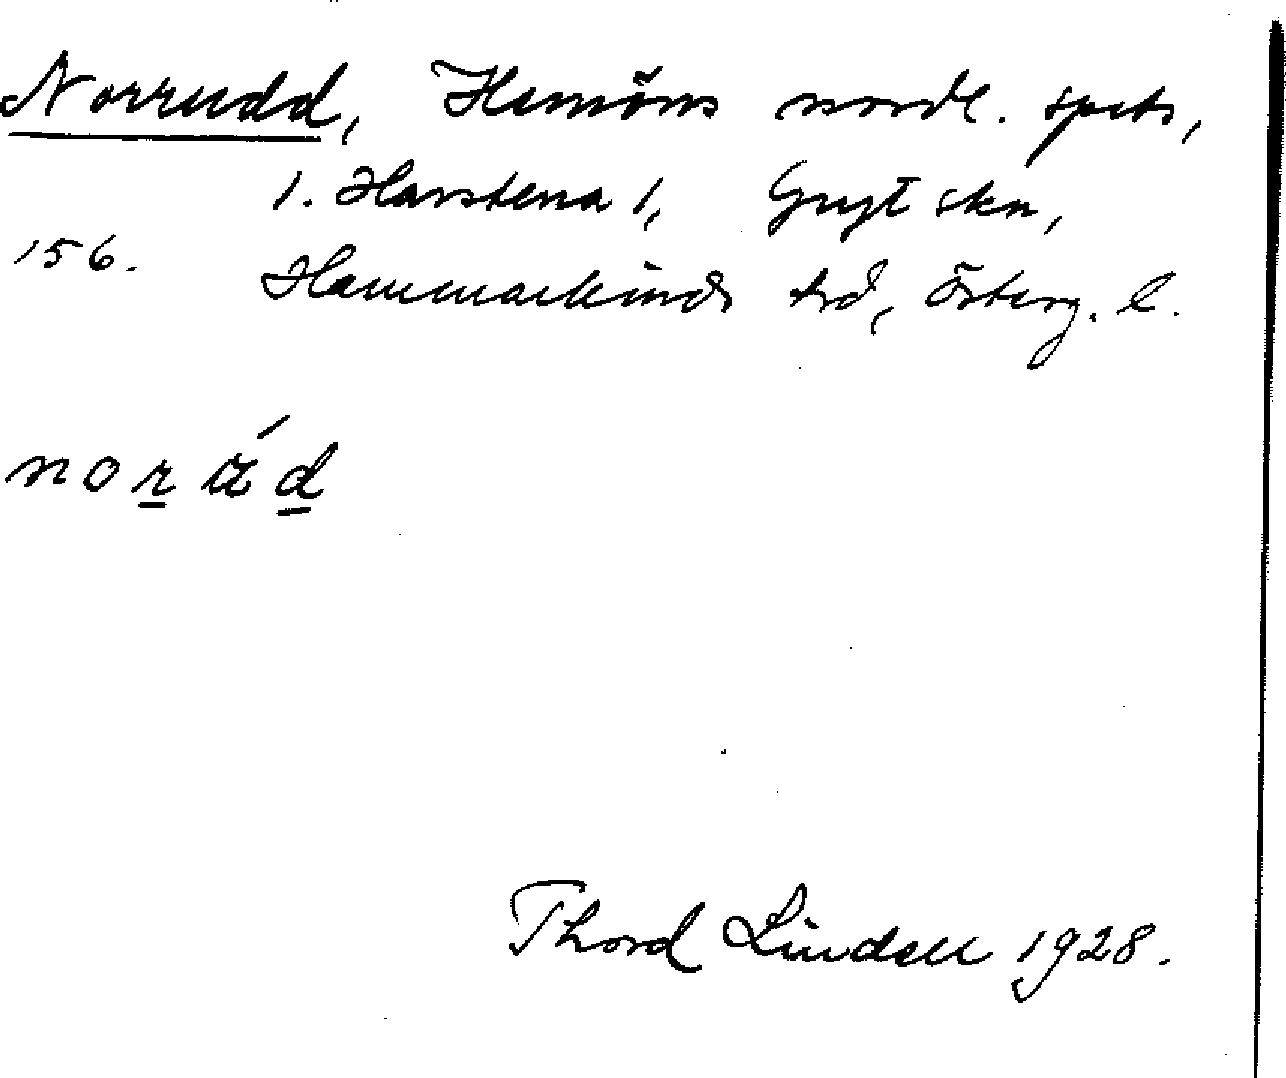 Norrudd, Hemöns nordl. spets,
1. Harstena 1, Gryt skn,
156. Hammarkinds hd, Österg. l.
norád
Thord Lindell 1928.